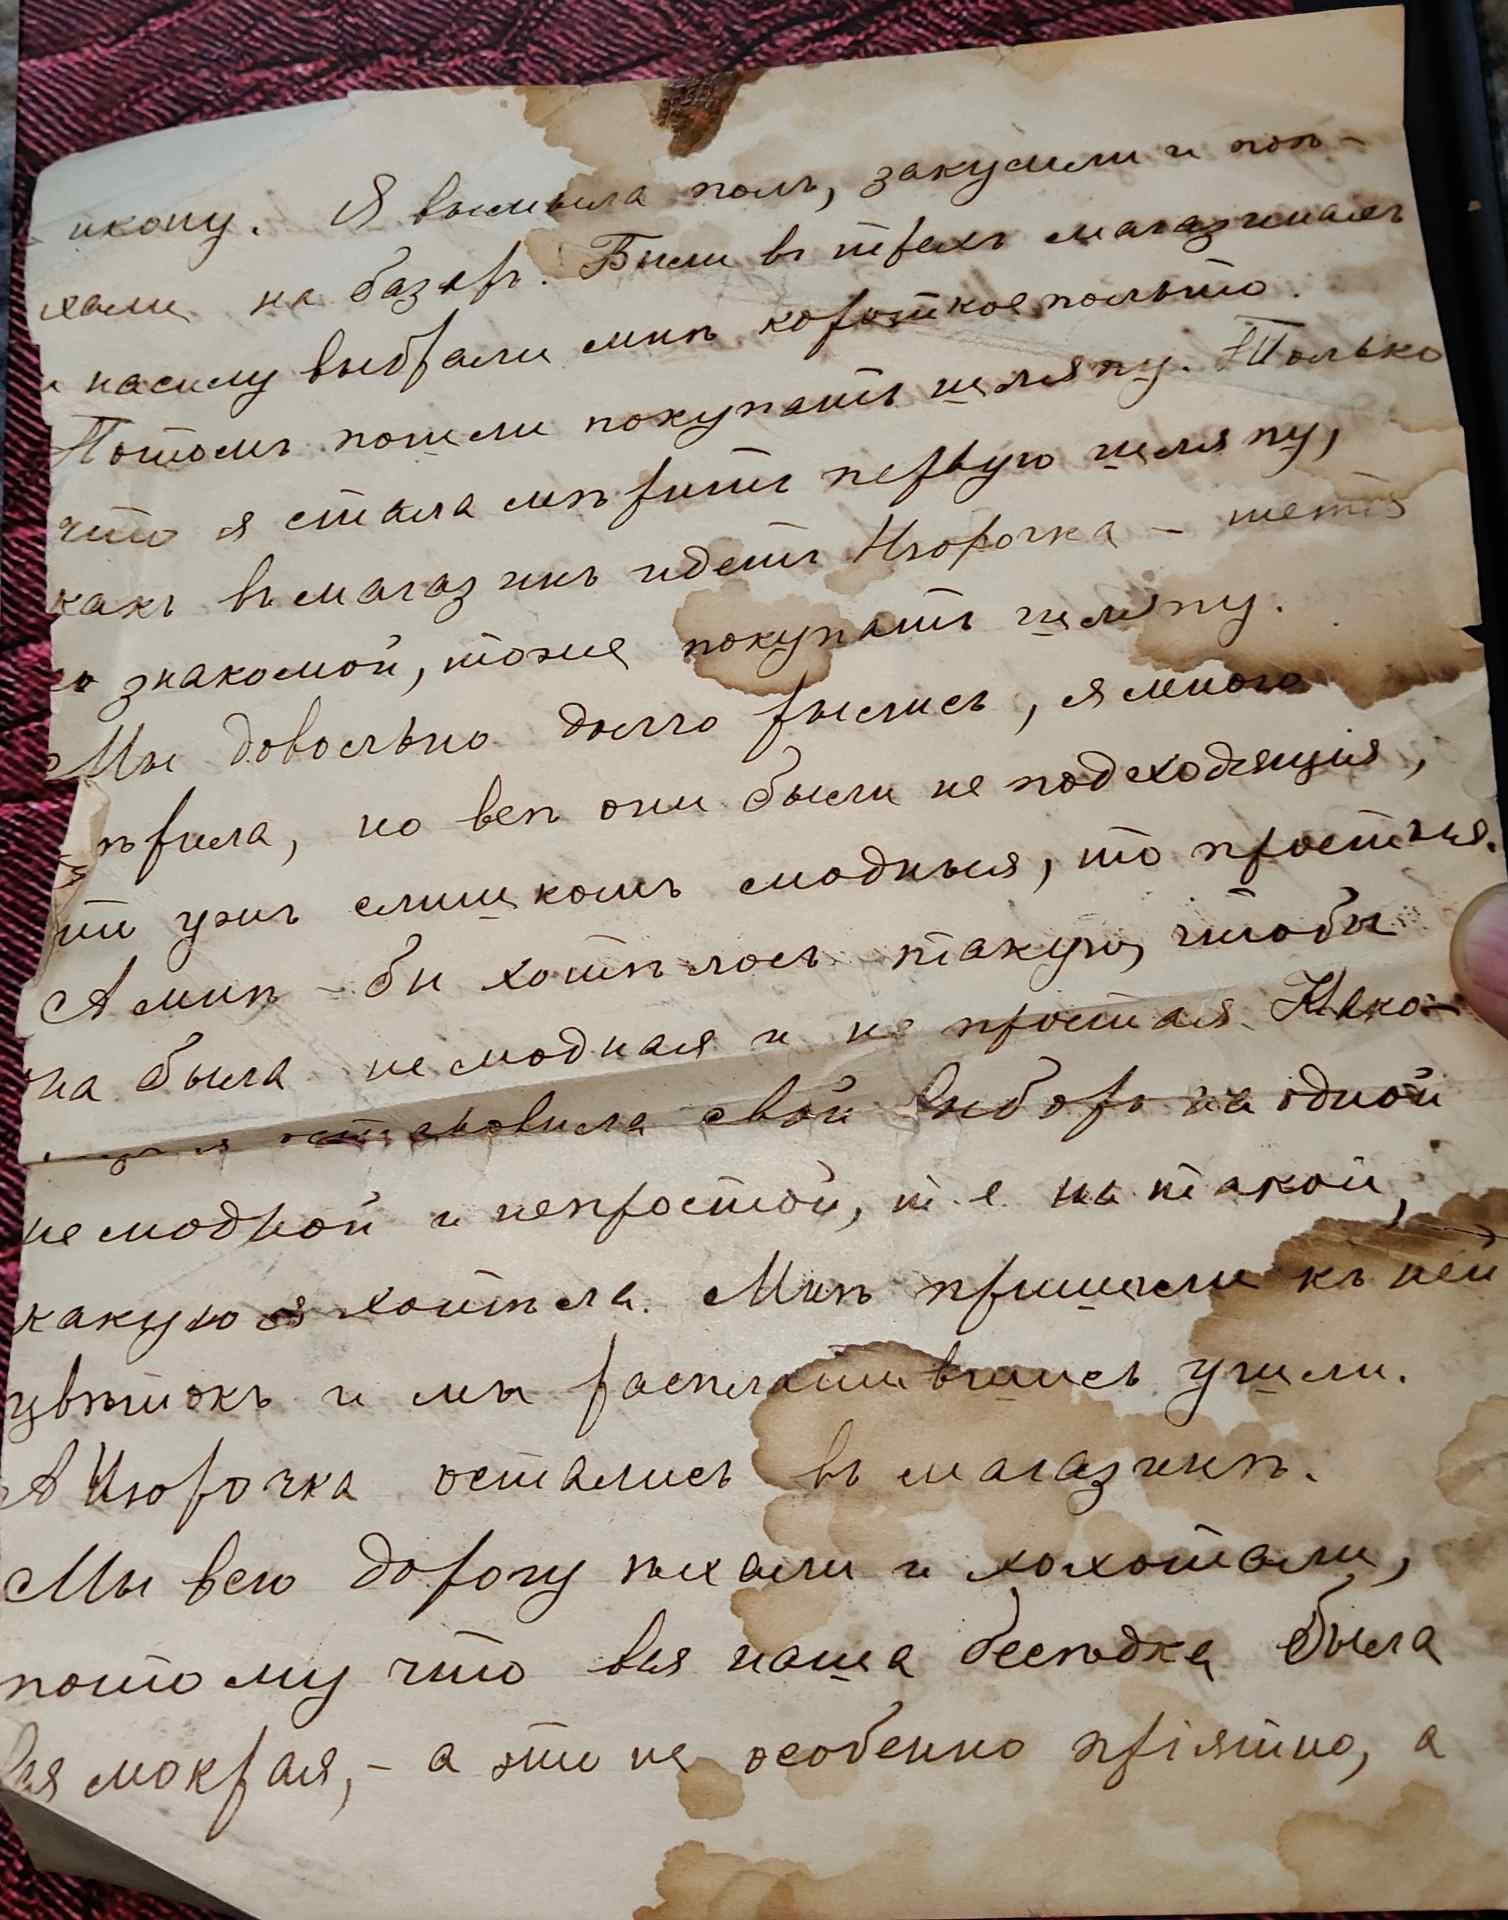 икону. Я вымыла полъ, закусили и поѣ-
хали на базаръ. Были въ трехъ магазинахъ
и насилу выбрали мнѣ короткое пальто.
Потомъ пошли покупать шляпу. Только
что я стала мѣрить первую шляпу,
какъ въ магазинъ идетъ Нюрочка – тетя
со знакомой, тоже покупать шляпу.
Мы довольно долго рылись, я много
мѣрила, но всѣ они были не подходящія,
то ужъ слишкомъ модныя, то простыя.
А мнѣ – бы хотѣлось такую, чтобы
она была не модная и не простая. Нако-
я остановила свой выборъ на одной
не модной и непростой, т е на такой,
какую я хотѣла. Мнѣ пришили къ ней
цвѣтокъ и мы расплатившись ушли.
А Нюрочка остались въ магазинѣ.
Мы всю дорогу ѣхали и хохотали,
потому что вся наша бесѣдка была
вся мокрая, – а это не особенно пріятно, а